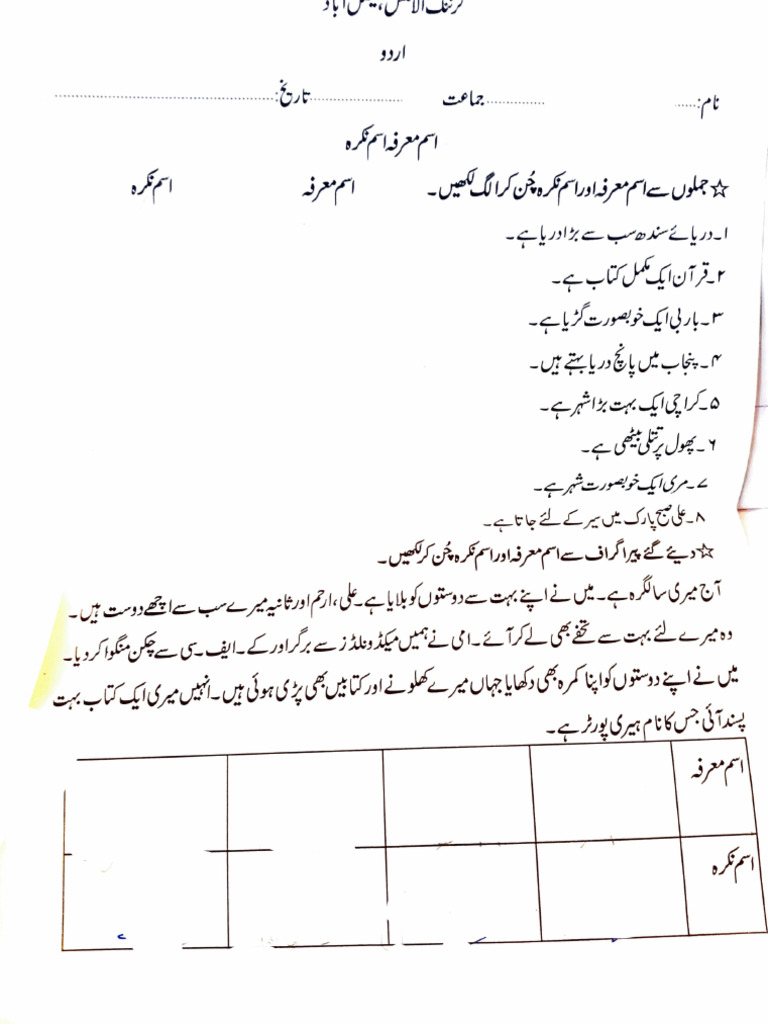 اردو
نام:...... جماعت ............... تاریخ:......................
اسم معرفہ اسم نکرہ
☆ جملوں سے اسم معرفہ اور اسم نکرہ چُن کر الگ لکھیں۔ اسم معرفہ اسم نکرہ
۱۔ دریائے سندھ سب سے بڑا دریا ہے۔
۲۔ قرآن ایک مکمل کتاب ہے۔
۳۔ باربی ایک خوبصورت گڑیا ہے۔
۴۔ پنجاب میں پانچ دریا بہتے ہیں۔
۵۔ کراچی ایک بہت بڑا شہر ہے۔
۶۔ پھول پر تتلی بیٹھی ہے۔
۷۔ مری ایک خوبصورت شہر ہے۔
۸۔ علی صبح پارک میں سیر کے لئے جاتا ہے۔
☆ دیئے گئے پیراگراف سے اسم معرفہ اور اسم نکرہ چُن کر لکھیں۔
آج میری سالگرہ ہے۔ میں نے اپنے بہت سے دوستوں کو بلایا ہے۔ علی، ارحم اور ثانیہ میرے سب سے اچھے دوست ہیں۔
وہ میرے لئے بہت سے تحفے بھی لے کر آئے۔ امی نے ہمیں میکڈونلڈز سے برگر اور کے۔ ایف۔ سی سے چکن منگوا کر دیا۔
میں نے اپنے دوستوں کو اپنا کمرہ بھی دکھایا جہاں میرے کھلونے اور کتابیں بھی پڑی ہوئی ہیں۔ انہیں میری ایک کتاب بہت
پسند آئی جس کا نام ہیری پورٹر ہے۔
اسم معرفہ
اسم نکرہ